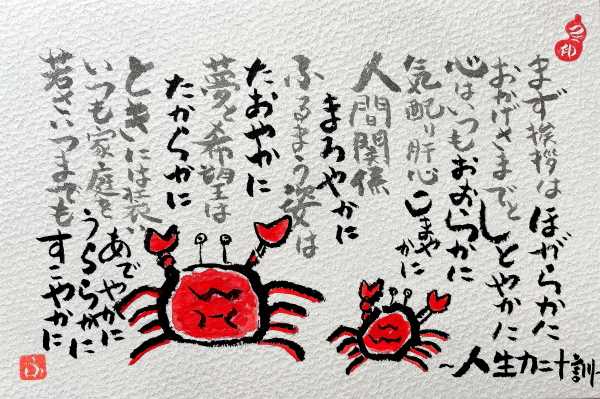 まず挨拶はほがらかに
おかげさまでとしとやかに
心はいつもおおらかに
気配り肝心こまやかに
人間関係
まろやかに
ふるまう姿は
たおやかに
夢と希望は
たからかに
ときには装い
あでやかに
いつも家庭を
うららかに
若さいつまでも
すこやかに
~人生カニ十訓~
ふ